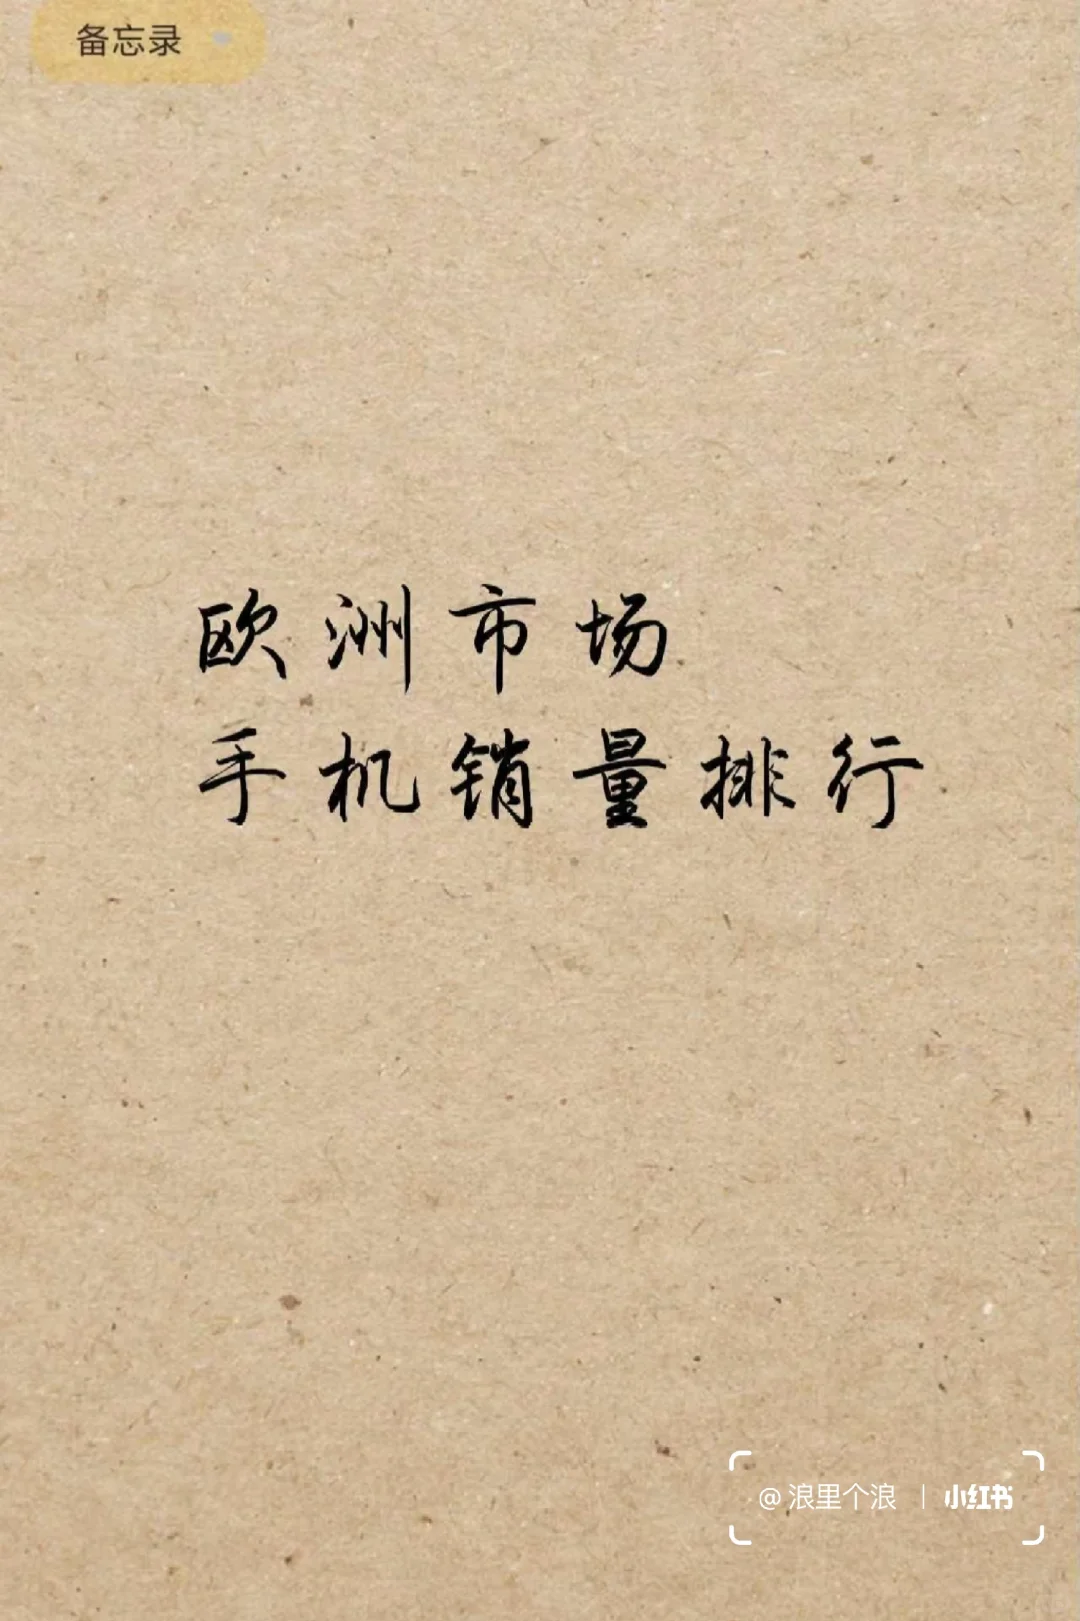 备忘录
欧洲市场
手机销量排行
@浪里个浪 | 小红书